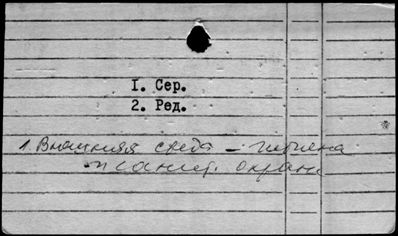 I. Сер.
2. Ред.
1. Внешняя среда – гигиена
и санит. охрана